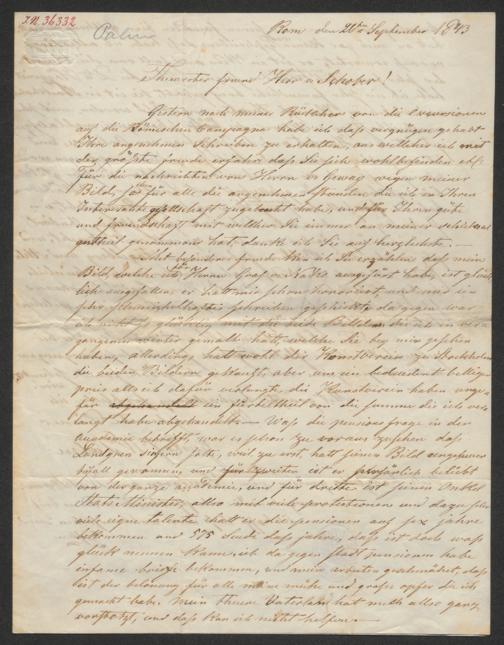 I.N. 36332
Palm
Rom den 26ten September 1843
Theuerster freund Herr v Schober!
Gestern nach meiner Rückkehr von die Excursionen
auf die Römischen Campagna habe ich dass vergnügen gehabt
Ihr angenehmen Schreiben zu erhalten, aus welcher ich mit
der größte freude erfahren dass Sie sich wohlbefinden
für die nachrichten von Herrn wegen meiner
Bild, für alle die angenehmen Stunden die ich in Ihren
Interessante gesellschaft zugebracht habe, und für Ihrer güte
und freundschaft mit welcher Sie immer an meiner schicksal
antheil genommen hat dank ich Sie auf herzlichste. —
Mit besondrer freude kan ich Sie erzählen dass mein
Bild welche ich Herrn Graf ausgeführt habe, ist glück-
liche ausgefallen er hat mir schon honorirt, und mir ein
sehr schmeichelhaftes schreiben geschickt da gegen war
ich nicht so glücklich mit die beide Bilder die ich in ver-
gangenen winter gemalt hat, welche Sie bey mir gesehen
haben, allerdings hat wohl die Kunstverein zu Stockholm
die beiden Bildern gekauft, aber um ein bedeutend billiger
preis als ich dafür verlangte, die Kunstverein haben unge-
fär ein fünftetheil von die summe die ich ver-
langt habe abgehandelt. — Was die pensions frage in der
Academie betrifft, war es schon zu voraus zusehen dass
Landgren siegern sollte, weil zu erst hatt seinen Bild ungeheuer
beifall gewonnen, und für zweiten ist er persönlich beliebt
von der ganze academie, und für dritten ist seinen Onkel
Stats Minister, also mit viele protectionen und dazu sehr
viele eigne talente hatt er die pensionen auf sex jahre
bekommen und 575 Scudi dass jahre, dass ist doch was
glück nennen kann, ich da gegen statt pensionen habe
infame briefe bekommen, und mein arbeiten geschmähet, dass
ist der belonung für alle meine mühe und große opfer die ich
gemacht habe. Mein theure Vaterland hat mich also ganz
verstossen, und dass kan ich nicht helfen. —